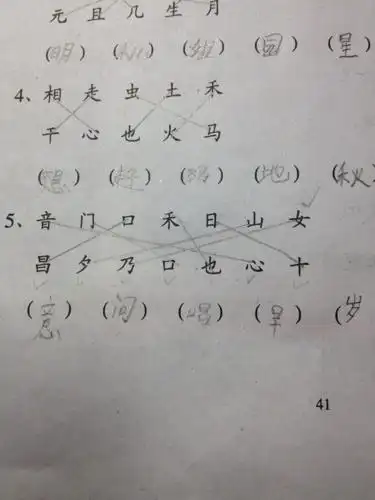 元 且 几 生 月
(明) ( ) (姐) (园) (星)
4、相 走 虫 土 禾
干 心 也 火 马
(想) (赶) (蚂) (地) (秋
5、音 门 口 禾 日 山 女
昌 夕 乃 口 也 心 十
(意) (问) (唱) (早) (岁
41